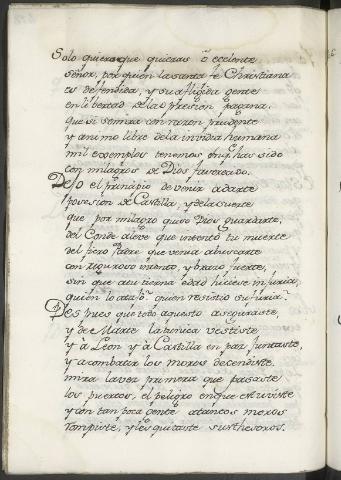 Solo quiero que quieras ô ecelente
señor, por quien la santa fe Christiana
es defendida, y su afligida gente
en libertad de la opresion pagana:
que si se mira con razon prudente
y animo libre de la invidia humana
mil exemplos tenemos enq. has sido
con milagros de Dios favorecido.
Dejo el principio de venir a darte
posesion de Castilla, y de la suerte
que por milagro quiso Dios guardarte,
del Conde aleve que intentò tu muerte
del fiero Padre que venia a buscarte
con riguroso intento, y brazo fuerte,
sin que a tu tierna edad hiciese injuria,
quién lo atajò, quien resistio su furia.
Despues que todo aquesto aseguraste,
y de Marte la tunica vestiste
y à Leon y à Castilla en paz juntaste,
y a combatir los moros decendiste.
mira la vez primera que pasaste
los puertos, el peligro en que estuviste
y con tan poca gente a tantos moros
rompiste, y les quitaste sus thesoros.